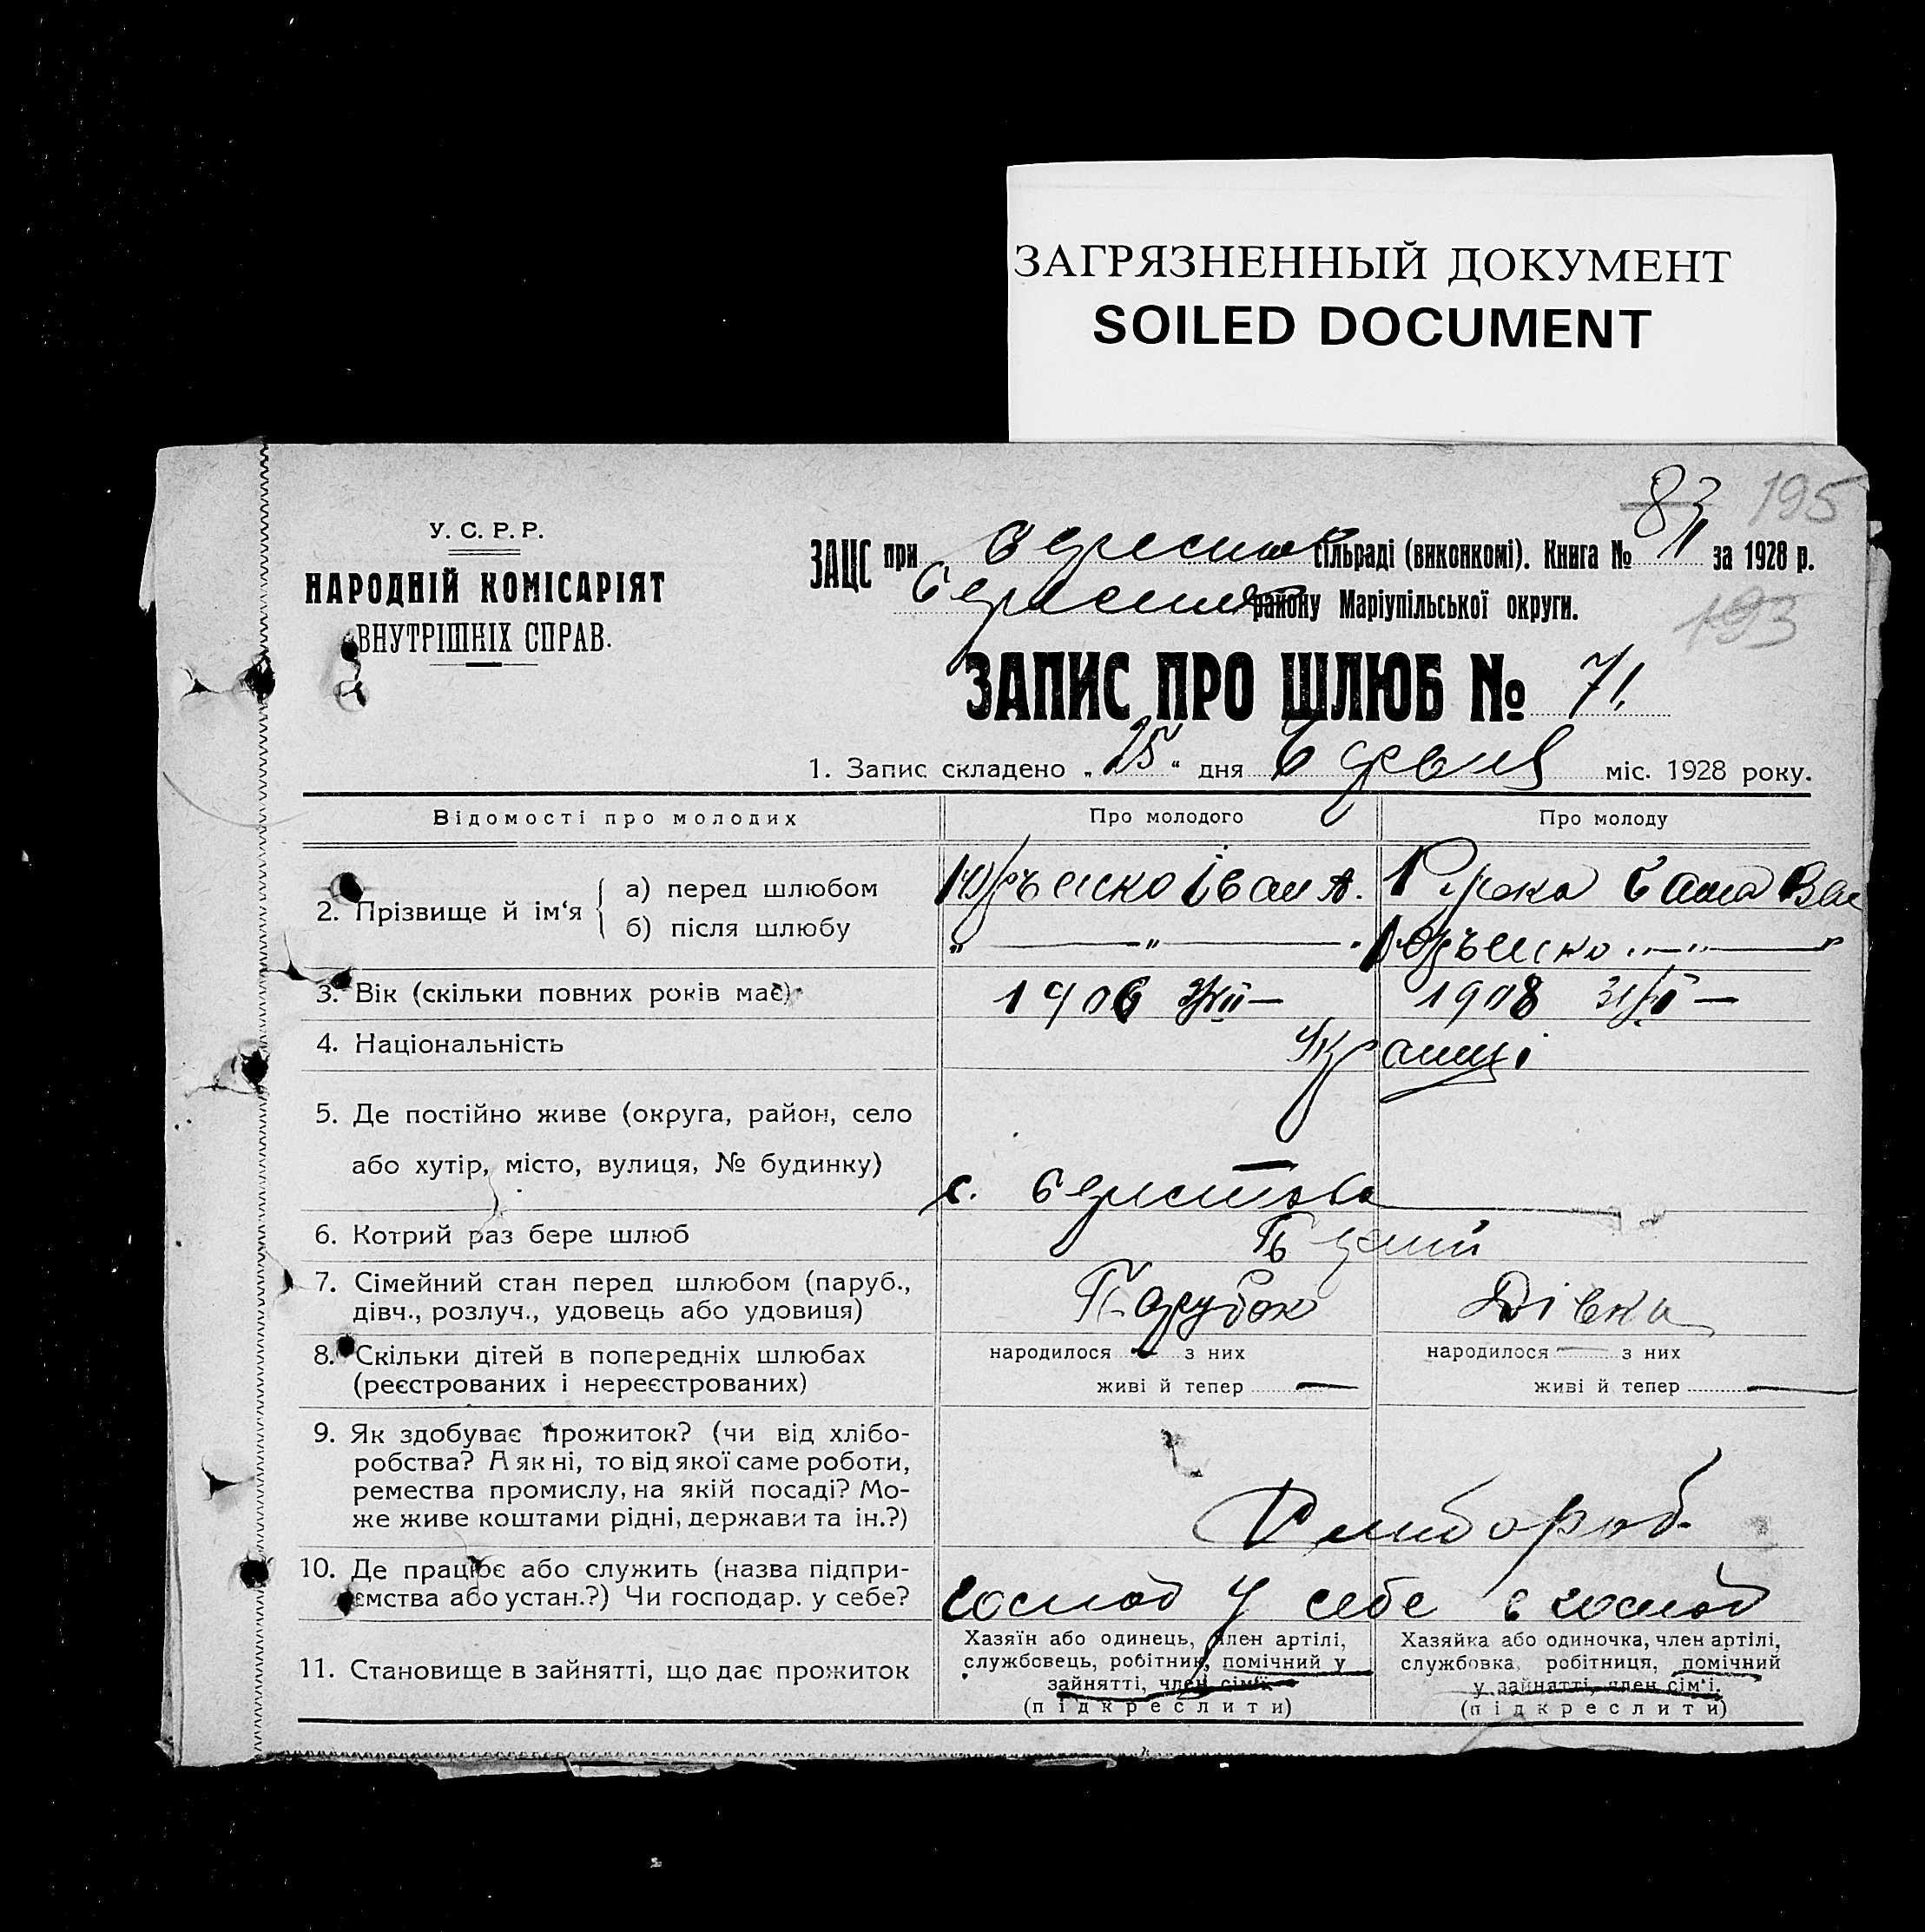 ЗАГРЯЗНЕННЫЙ ДОКУМЕНТ
SOILED DOCUMENT
83 195
У. С. Р. Р.
НАРОДНІЙ КОМІСАРІЯТ
ВНУТРІШНІХ СПРАВ.
ЗАЦС при сільраді (виконкомі). Книга № за 1928 р.
району Маріупільської округи.
193
ЗАПИС ПРО ШЛЮБ № 71
1. Запис складено „ 25 “ дня міс. 1928 року.
Відомості про молодих Про молодого Про молоду
2. Прізвище й ім‘я
а) перед шлюбом Іван
б) після шлюбу „ — „ —
3. Вік (скільки повних років має) 1906 1908
4. Національність
5. Де постійно живе (округа, район, село
або хутір, місто, вулиця, № будинку)
с. Берестове
6. Котрий раз бере шлюб
7. Сімейний стан перед шлюбом (паруб.,
дівч., розлуч., удовець або удовиця)
Парубок Дівка
8. Скільки дітей в попередніх шлюбах
(реєстрованих і нереєстрованих)
народилося — з них народилося — з них
живі й тепер — живі й тепер —
9. Як здобуває прожиток? (чи від хлібо-
робства? А як ні, то від якої саме роботи,
ремества промислу, на якій посаді? Мо-
же живе коштами рідні, держави та ін.?)
10. Де працює або служить (назва підпри-
ємства або устан.?) Чи господар. у себе?
господ у себе в господ
11. Становище в зайнятті, що дає прожиток
Хазяїн або одинець, член артілі,
службовець, робітник, помічний у
зайнятті, член сім‘ї.
(підкреслити)
Хазяйка або одиночка, член артілі,
службовка, робітниця, помічний
у зайнятті, член сім‘ї.
(підкреслити)